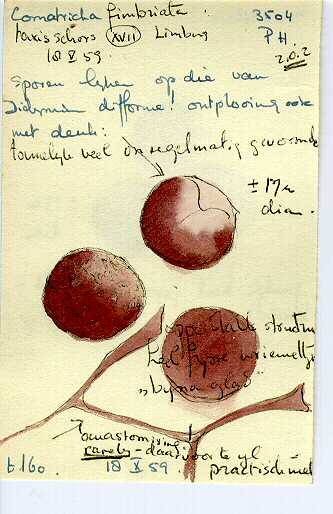 Comatricha fimbriata. 3504
taxisschors XVII Limburg PH.
18 X 59. 202
Sporen lijken op die van
Didymium difforme! ontplooing ook
met deuk:
tamelijk veel onregelmatig gevormde
± 17 µ
diam.
heel fijne wrienetje
„bijna glad"
Anastomising
rarely - daarvoor te yl.
t160. 18 X 59. practisch niet